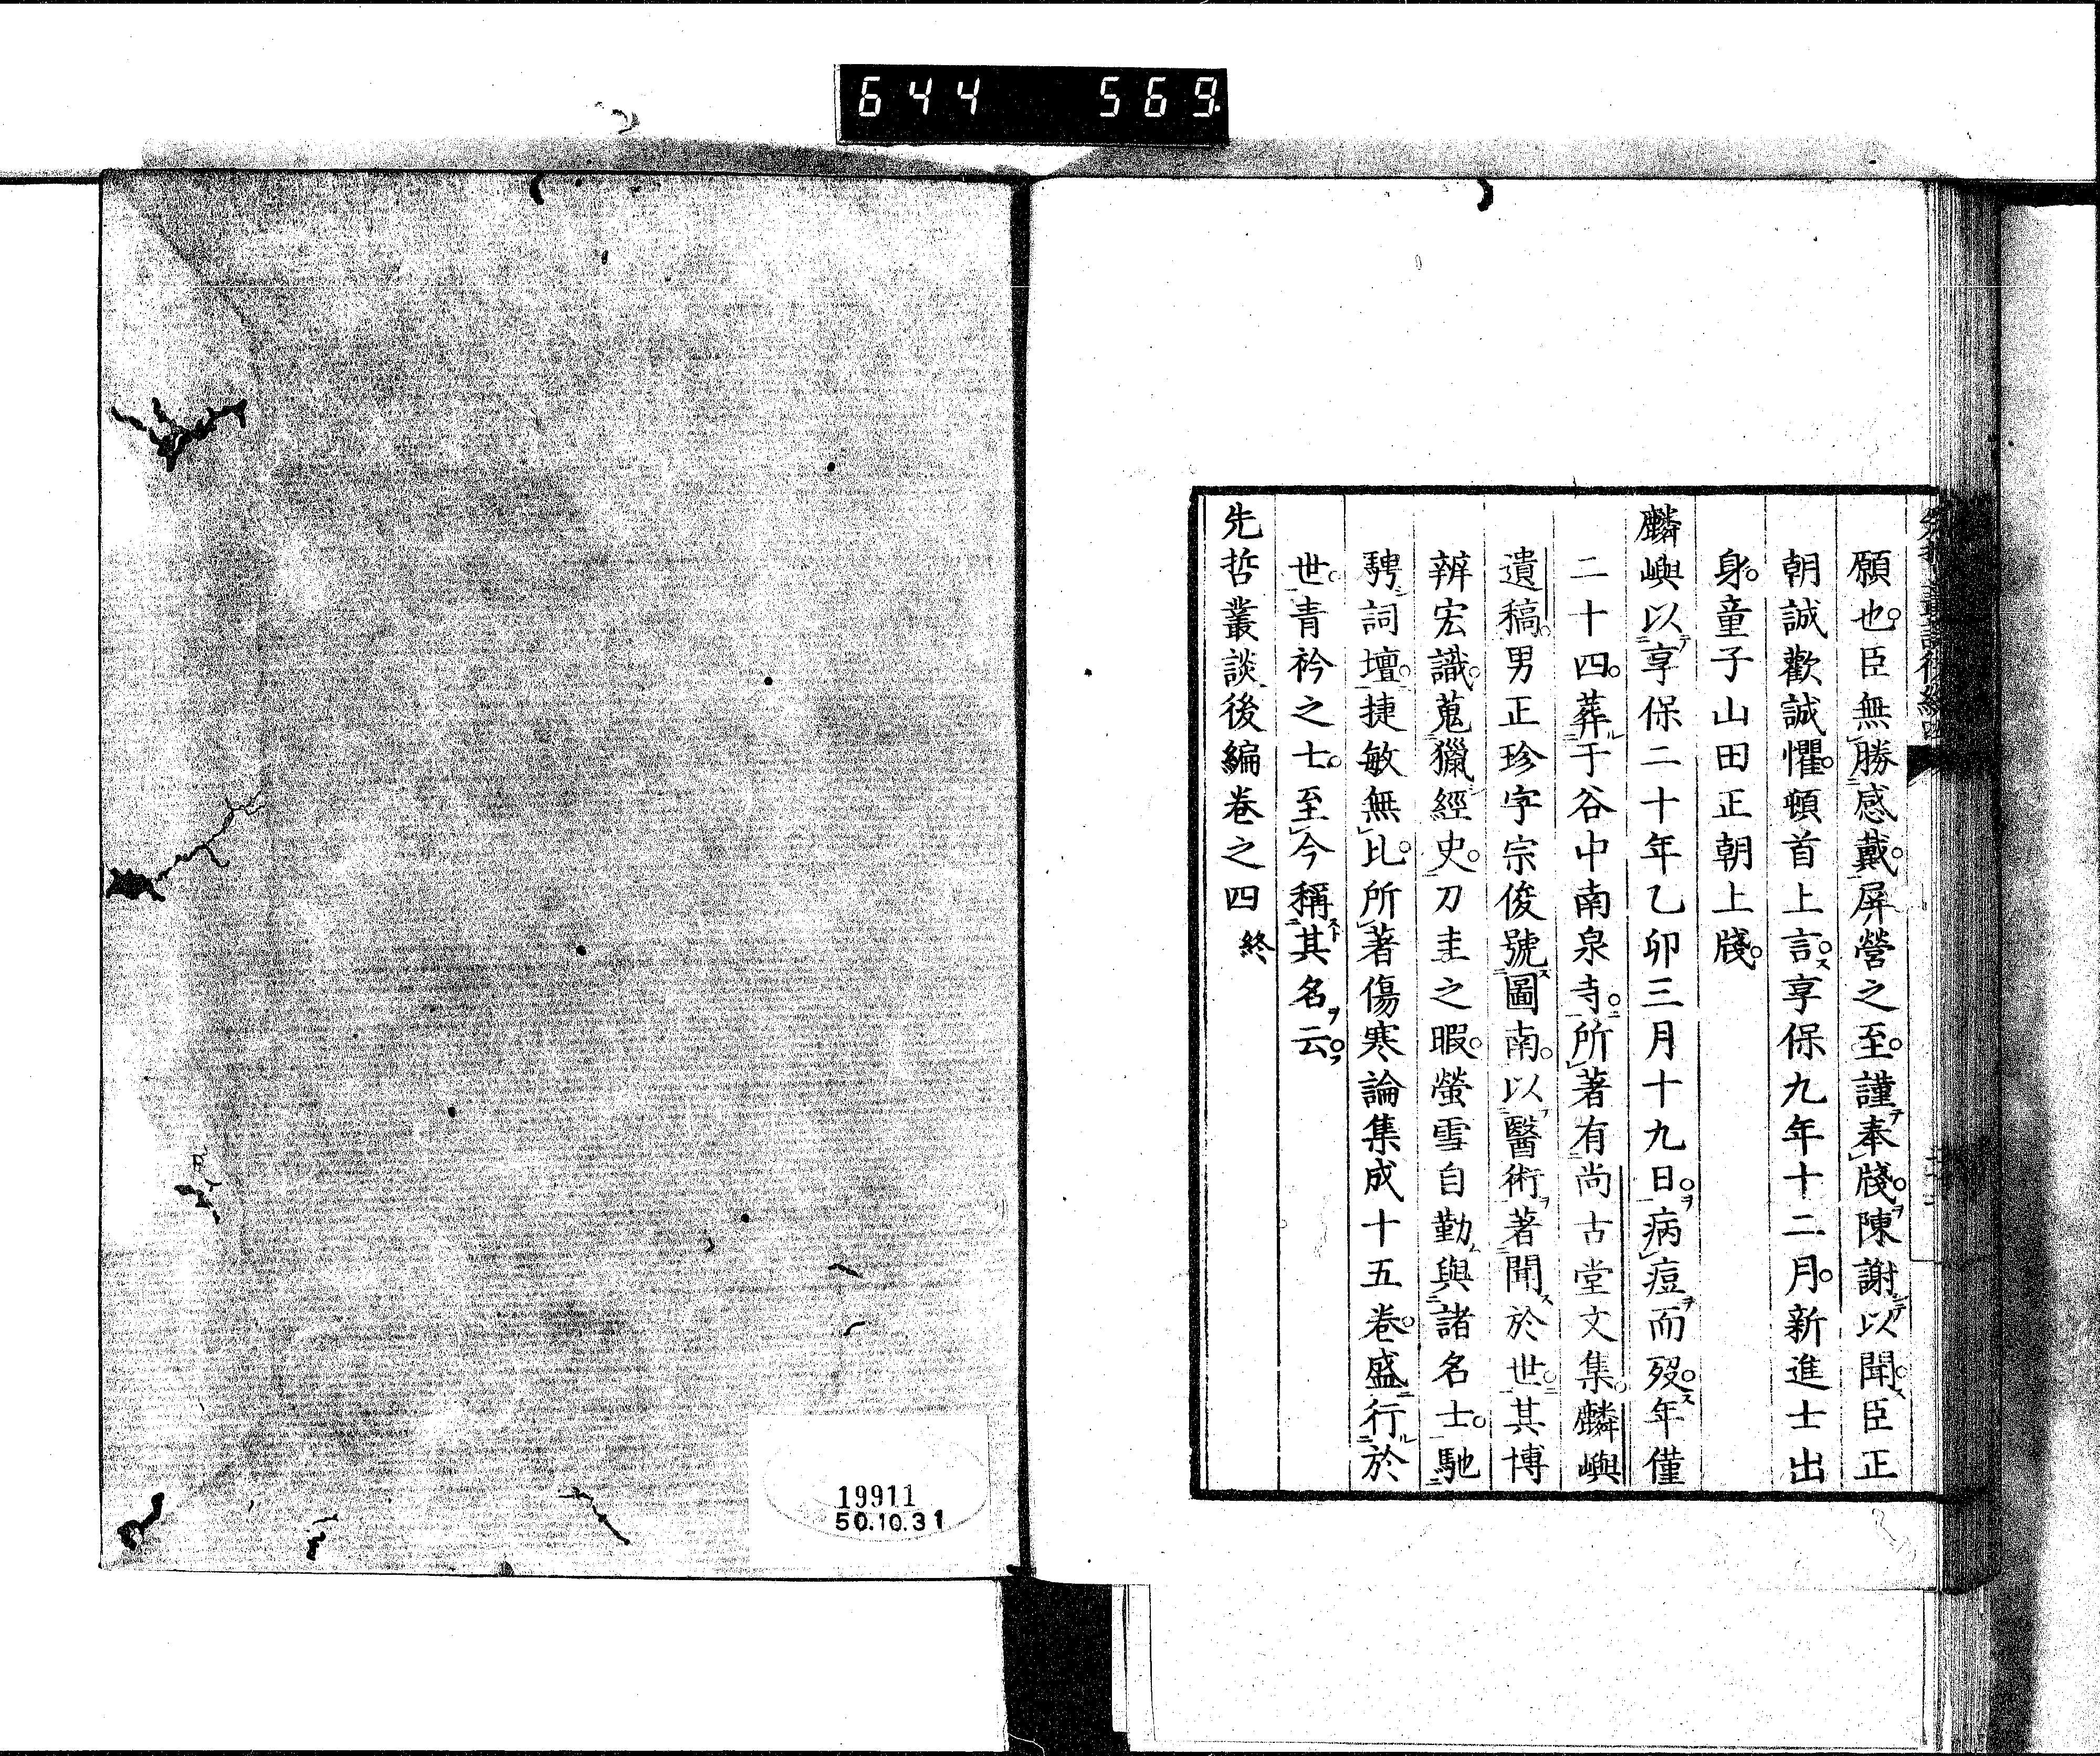 644 569
願也。臣無勝感戴。屏營之至。謹奉牋。陳謝以聞。臣正
朝誠歡誠懼。頓首上言。享保九年十二月。新進士出
身。童子山田正朝上牋。
麟嶼以享保二十年乙卯三月十九日。病痘而歿。年僅
二十四。葬于谷中南泉寺。所著有尚古堂文集。麟嶼
遺稿。男正珍字宗俊號圖南。以醫術著聞於世。其博
辨宏識。蒐獵經史。刀圭之暇。螢雪自勤與諸名士。馳
騁詞壇。捷敏無比。所著傷寒論集成十五卷。盛行於
世。青衿之士。至今稱其名云。
先哲叢談後編卷之四 終
19911
50.10.31